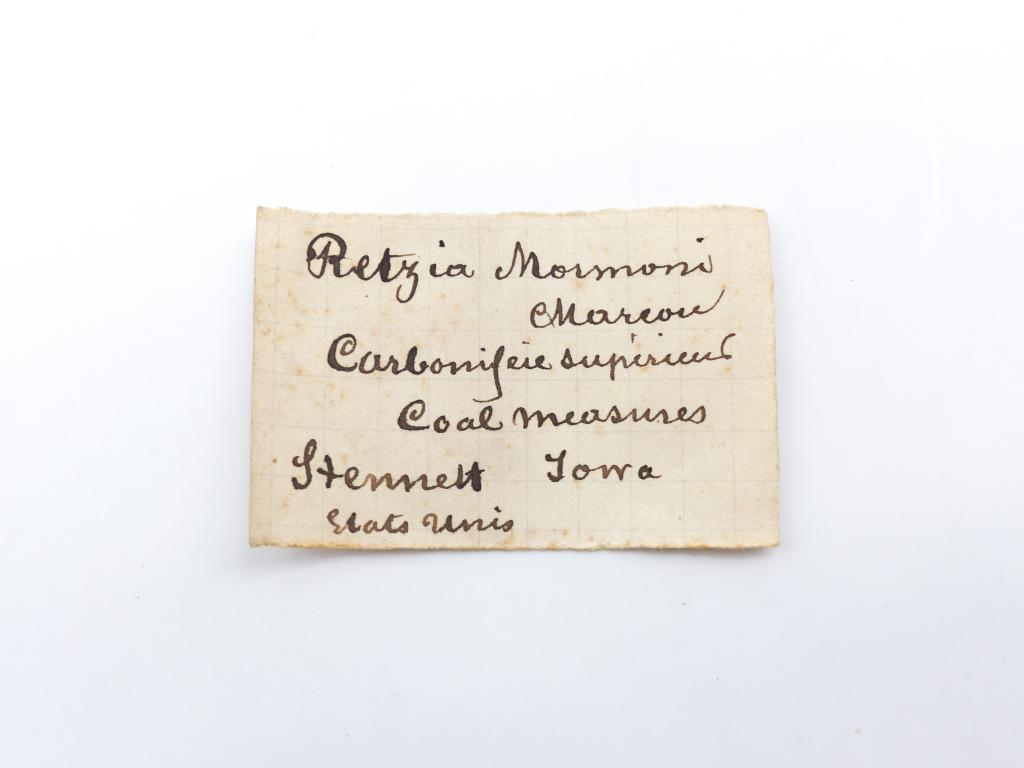 Retzia Mormoni
Marcou
Carbonifere supérieur
Coal measures
Stennett Iowa
Etats Unis